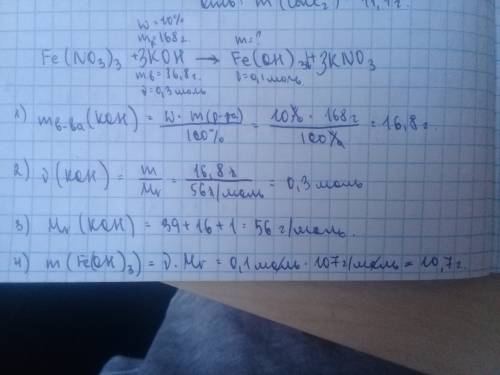 m (CaCl₂) 11,1 г.
w = 10%
mр 168 г. m = ?
Fe(NO₃)₃ + 3KOH → Fe(OH)₃↓ + 3KNO₃
mв = 16,8 г. ν = 0,1 моль
ν = 0,3 моль
1) mв-ва (KOH) = w · m(р-ра) / 100% = 10% · 168 г / 100% = 16,8 г.
2) ν (KOH) = m / Mr = 16,8 г / 56 г/моль = 0,3 моль
3) Mr (KOH) = 39 + 16 + 1 = 56 г/моль.
4) m (Fe(OH)₃) = ν · Mr = 0,1 моль · 107 г/моль = 10,7 г.